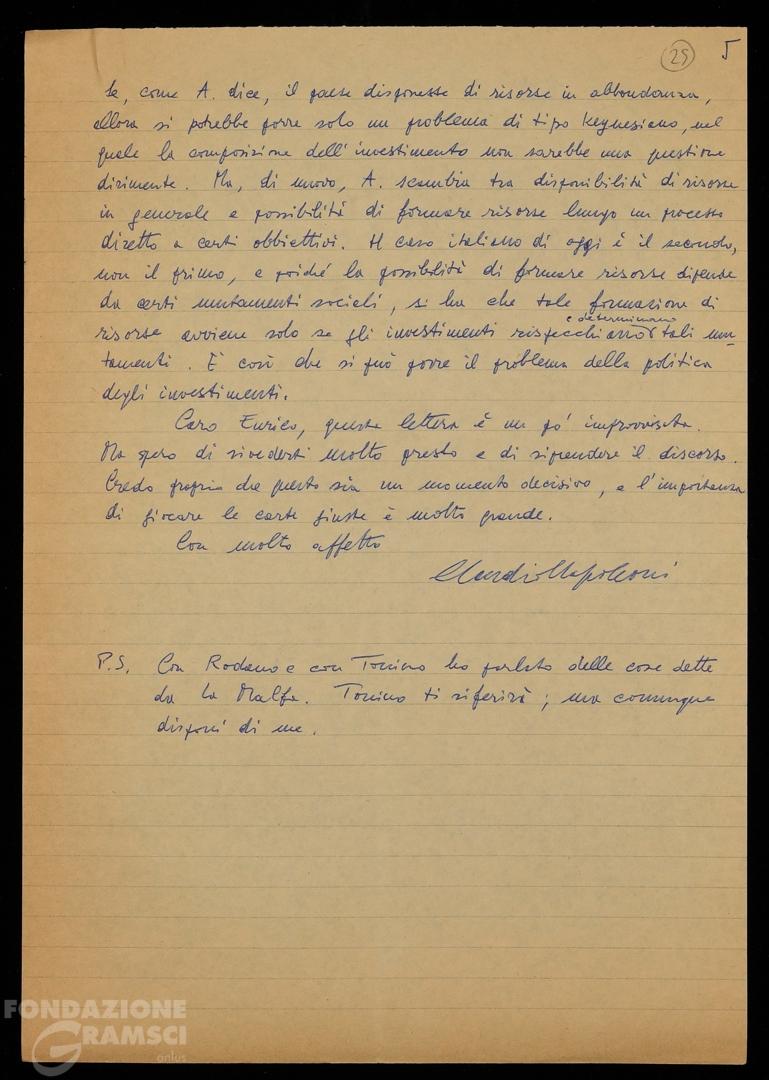 25 5
Se, come A. dice, il paese disponesse di risorse in abbondanza,
allora si potrebbe porre solo un problema di tipo keynesiano, nel
quale la composizione dell'investimento non sarebbe una questione
dirimente. Ma, di nuovo, A. scambia tra disponibilità di risorse
in generale e possibilità di formare risorse lungo un processo
diretto a certi obbiettivi. Il caso italiano di oggi è il secondo,
non il primo, e poiché la possibilità di formare risorse dipende
da certi mutamenti sociali, si ha che tale formazione di
e determinano
risorse avviene solo se gli investimenti rispecchiano tali mu-
tamenti. È così che si può porre il problema della politica
degli investimenti.
Caro Enrico, questa lettera è un po' improvvisata.
Ma spero di rivederti molto presto e di riprendere il discorso.
Credo proprio che questo sia un momento decisivo, e l'importanza
di giocare le carte giuste è molto grande.
Con molto affetto
Claudio Napoleoni
P.S. Con Rodano e con Tonino ho parlato delle cose dette
da La Malfa. Tonino ti riferirà; ma comunque
disponi di me.
FONDAZIONE
GRAMSCI
onlus